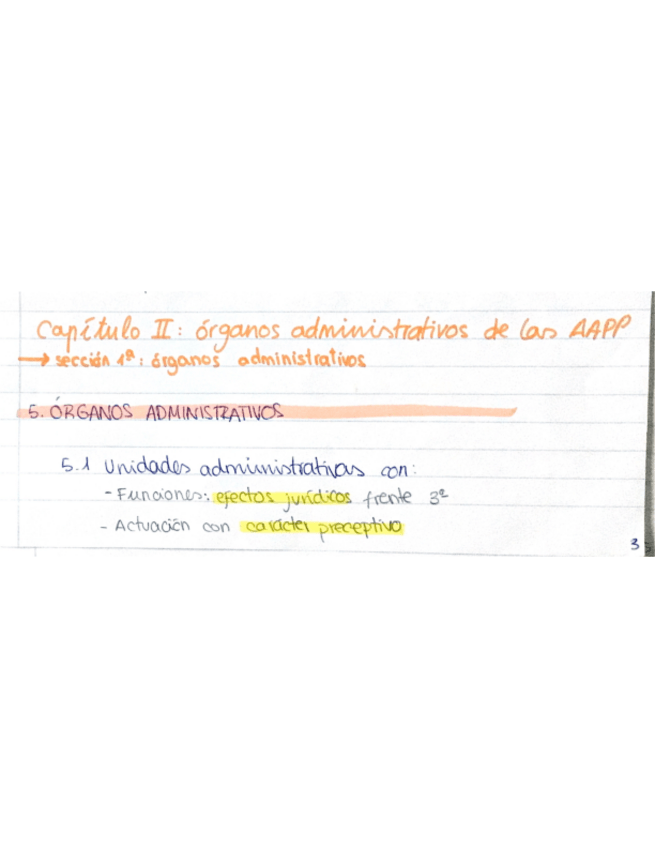 Capítulo II: órganos administrativos de las AAPP
→ sección 1ª: órganos administrativos
5. ÓRGANOS ADMINISTRATIVOS
5.1 Unidades administrativas con:
- Funciones: efectos jurídicos frente 3º
- Actuación con carácter preceptivo
3